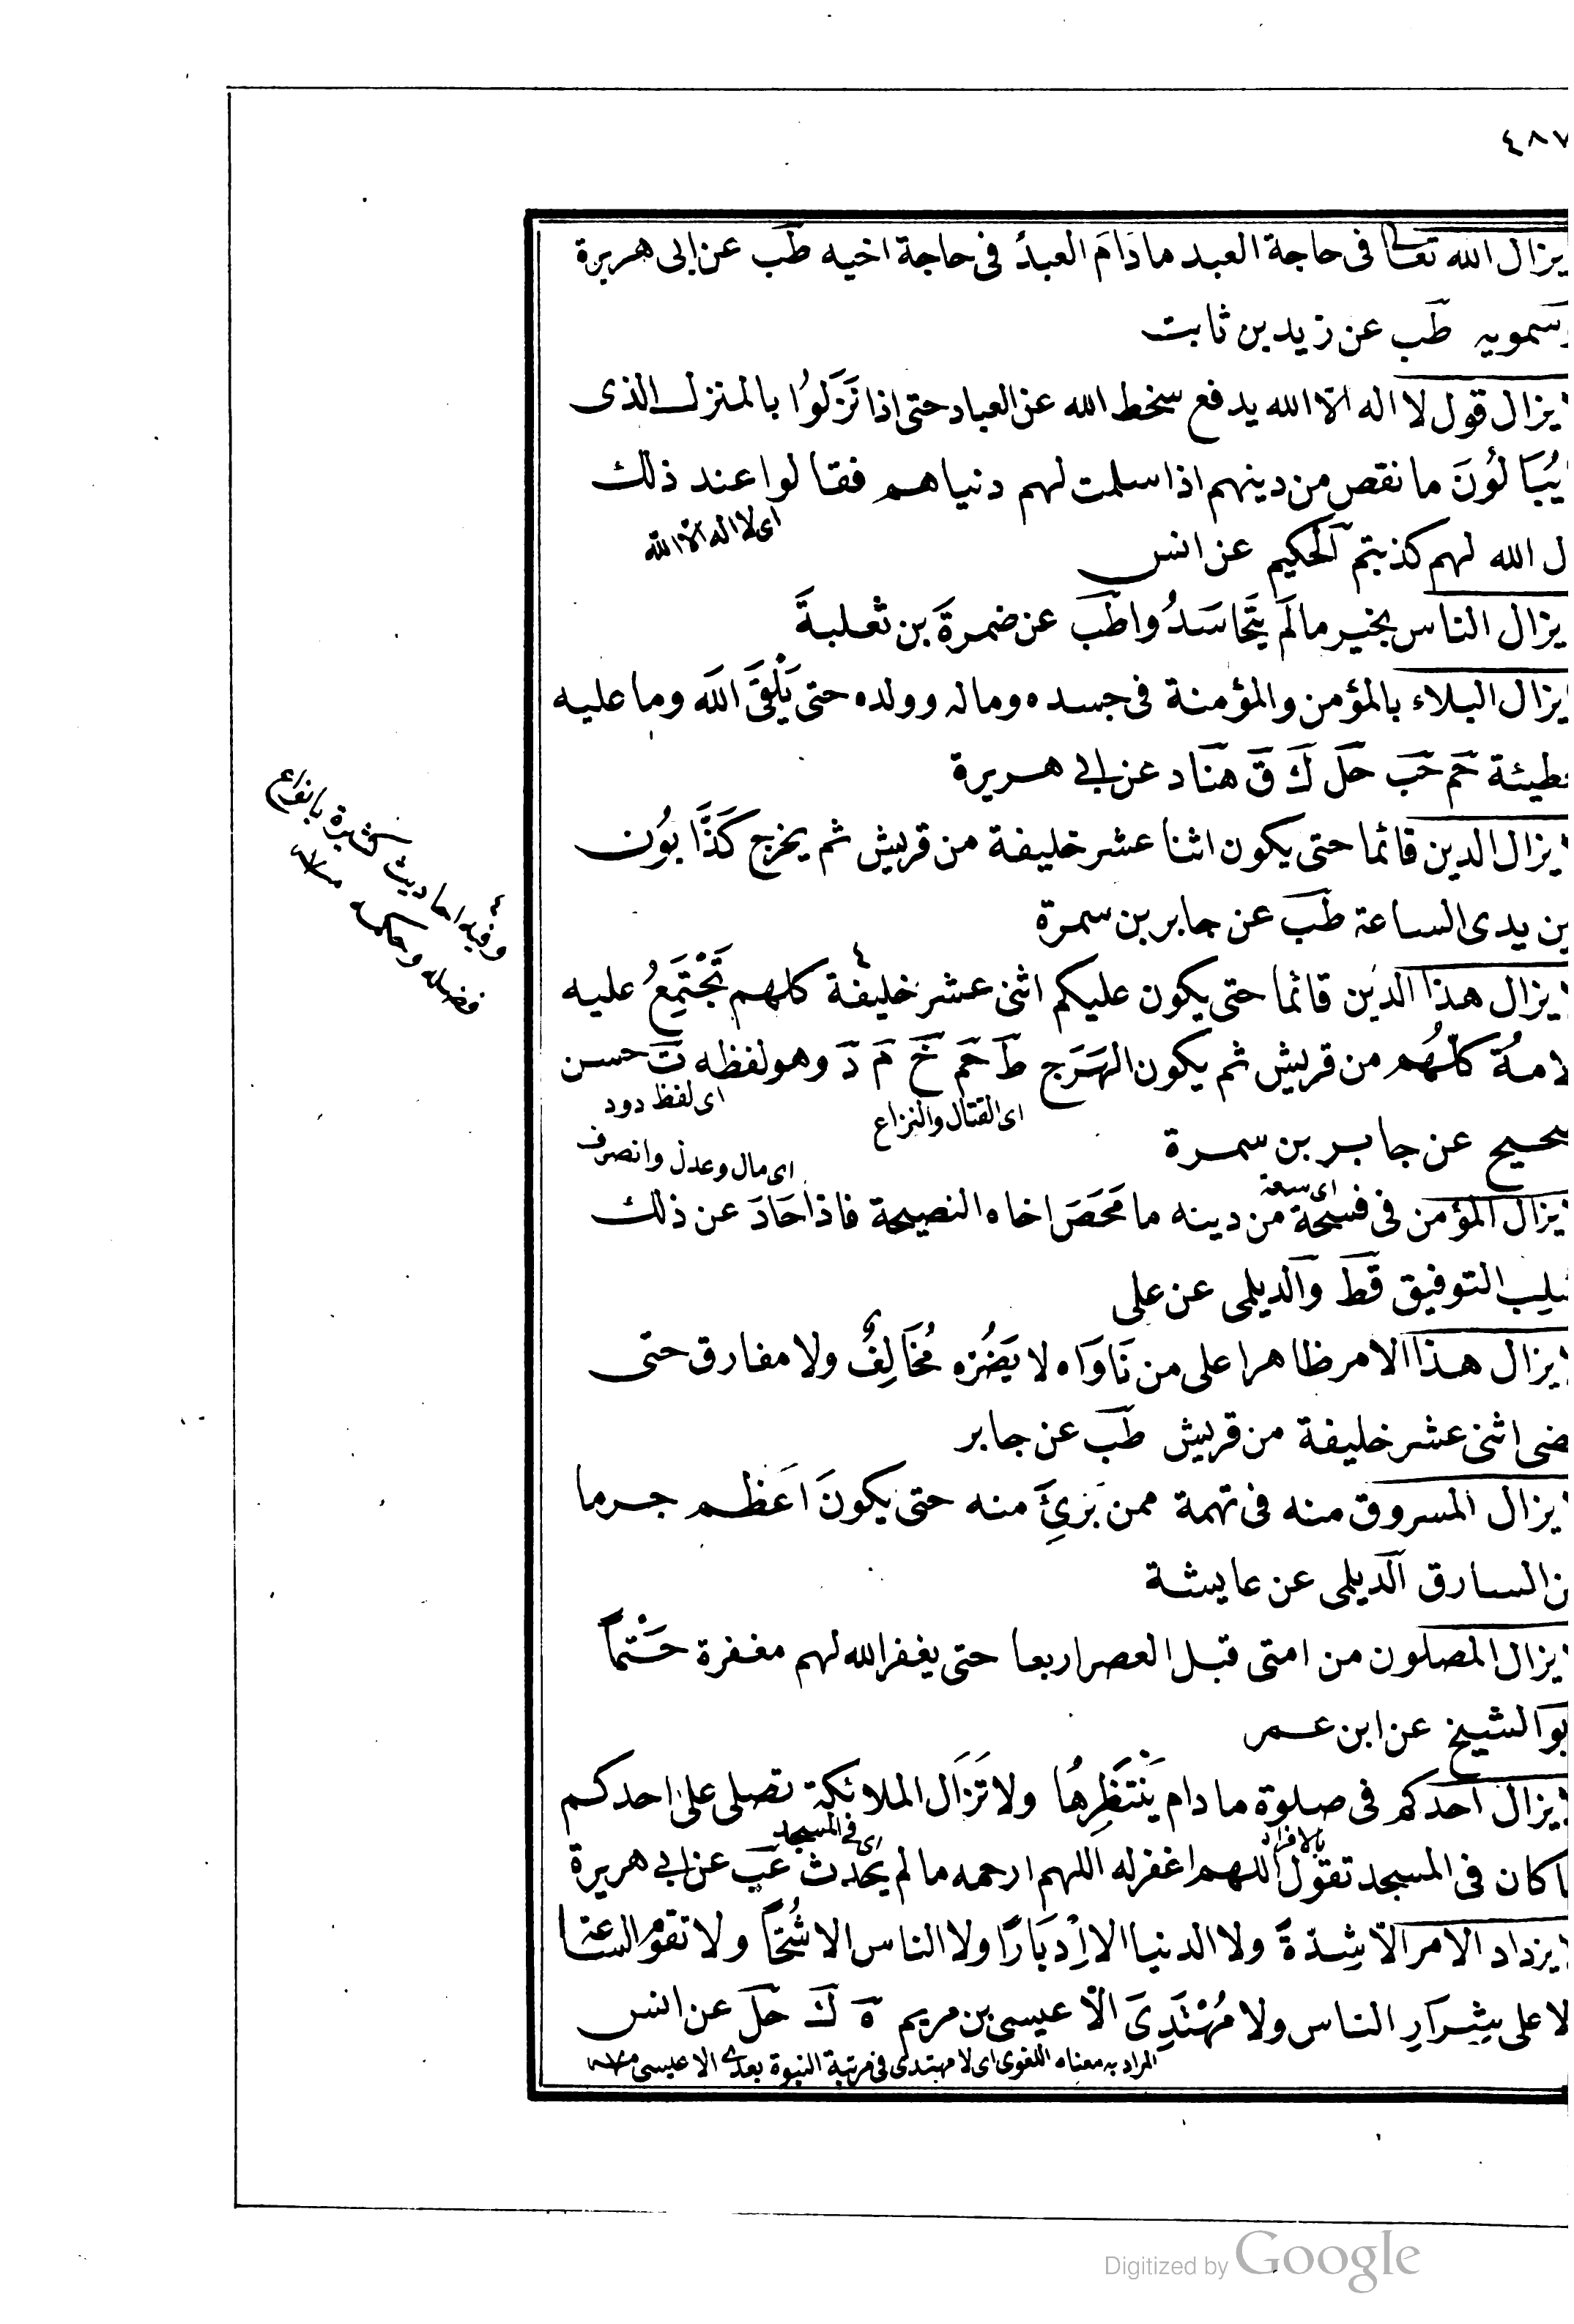 ٤٨٧
يزال الله تعالى فى حاجة العبد مادَامَ العبدُ فى حاجة اخيه طَب عن ابى هريرة
وسمويه طَب عن زيد بن ثابت
يزال قول لا اله الّا الله يدفع سخط الله عن العباد حتى اذا نَزَلُوا بالمنزل الذى
يُبَالُونَ ما نقص من دينهم اذا سلمت لهم دنياهم فقالوا عند ذلك
اى لا اله الّا الله
ل الله لهم كذبتم الحكيم عن انس
يزال الناس بخير مالَم يَتَحَاسَدُوا طَب عن ضمرةَ بن ثعلبةَ
يزال البلاء بالمؤمن والمؤمنة فى جسده وماله وولده حتى يَلْقَى اللهَ وما عليه
خطيئة حَم حَب حَل كَ قَ هنَاد عن ابى هريرة
يزال الدين قائما حتى يكون اثنا عشر خليفة من قريش ثم يخرج كَذَّابُون
ين يدى الساعة طَب عن جابر بن سمرة
يزال هذا الدين قائما حتى يكون عليكم اثنى عشر خليفة ٤ كلهم تَجْتَمِعُ عليه
٤ وفيه احاديث كثيرة بانواع
فضله وحكمه
لامة كلهُم من قريش ثم يكون الهَرَج طَ حَم خَ مَ دَ وهو لفظه تَ حسن
اى القتال والنزاع
اى لفظ دود
صحيح عن جابر بن سمرة
اى مال وعدل وانصرف
اى سعة
يزال المؤمن فى فسحة من دينه ما مَحَضَ اخاه النصيحة فاذا حَادَ عن ذلك
سُلِب التوفيق قَط والَديلمى عن على
يزال هذا الامر ظاهرا على من نَاوَاه لا يَضُرّه مُخَالِفٌ ولا مفارق حتى
ضى اثنى عشر خليفة من قريش طَب عن جابر
يزال المسروق منه فى تهمة ممن بَرِئَ منه حتى يكونَ اَعظم جرما
ن السارق الَديلمى عن عايشة
يزال المصلون من امتى قبل العصر اربعا حتى يغفر الله لهم مغفرة حَتْماً
بو الشيخ عن ابن عمر
يزال احدكم فى صلوة مادام يَنْتَظِرهُا ولا تَزَال الملائكة تصلى على احدكم
بالافراد
اى فى المسجد
ما كان فى المسجد تقول اللهم اغفر له اللهم ارحمه ما لم يُحدث عَب عن ابى هريرة
يزداد الامر الّا شِدّةً ولا الدنيا الا اِدْبَارًا ولا الناس الا شُحّاً ولا تقوم الساعة
لا على شِرَارِ الناس ولا مُهْتَدِىَ الّا عيسى بن مريم هَ كَ حَل عن انس
المراد به معناه اللغوى اى لا مهتدى فى مرتبة النبوة بعدى الا عيسى
Digitized by Google